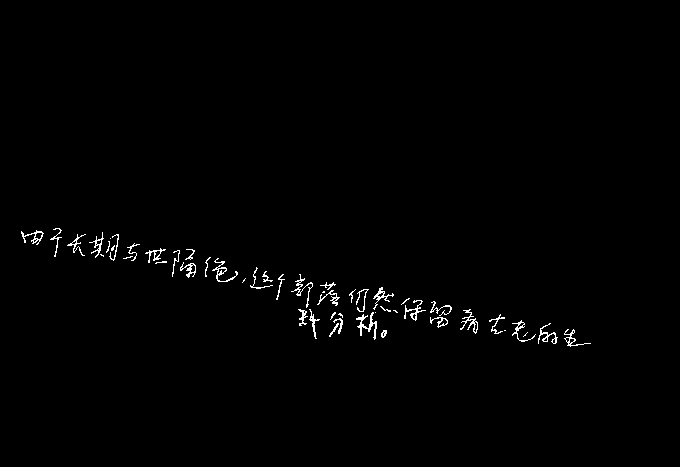 由于长期与世隔绝，这个部落仍然保留着古老的生
料分析。